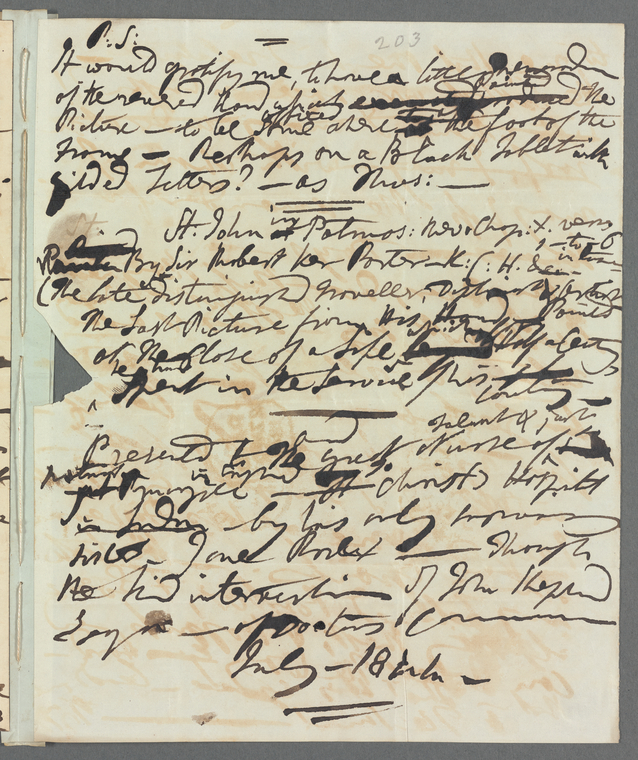 203
P.S:
It would gratify me, to have a little memorandum
of the revered Hand which the
Picture — to be affixed some where at the foot of the
Frame — Perhaps on a Black Tablet with
gilded Letters? — as Thus: —
St. John in Patmos: Rev: Chap: X. verse
By Sir Robert Ker Porter — K: C: H: &c —
(The late distinguished Traveller, Diplomatist & Artist
The Last Picture from His Hand — Painted
at the Close of a Life, Half a Century
he had Spent in the Service of his Country —
Presented to the great Nurse of talent & just
Principle in England — Christ's Hospital
in London — by his only surviving
sister Jane Porter — Through
the kind intervention of John Shephard
Esqre — of Doctors Commons
July — 18